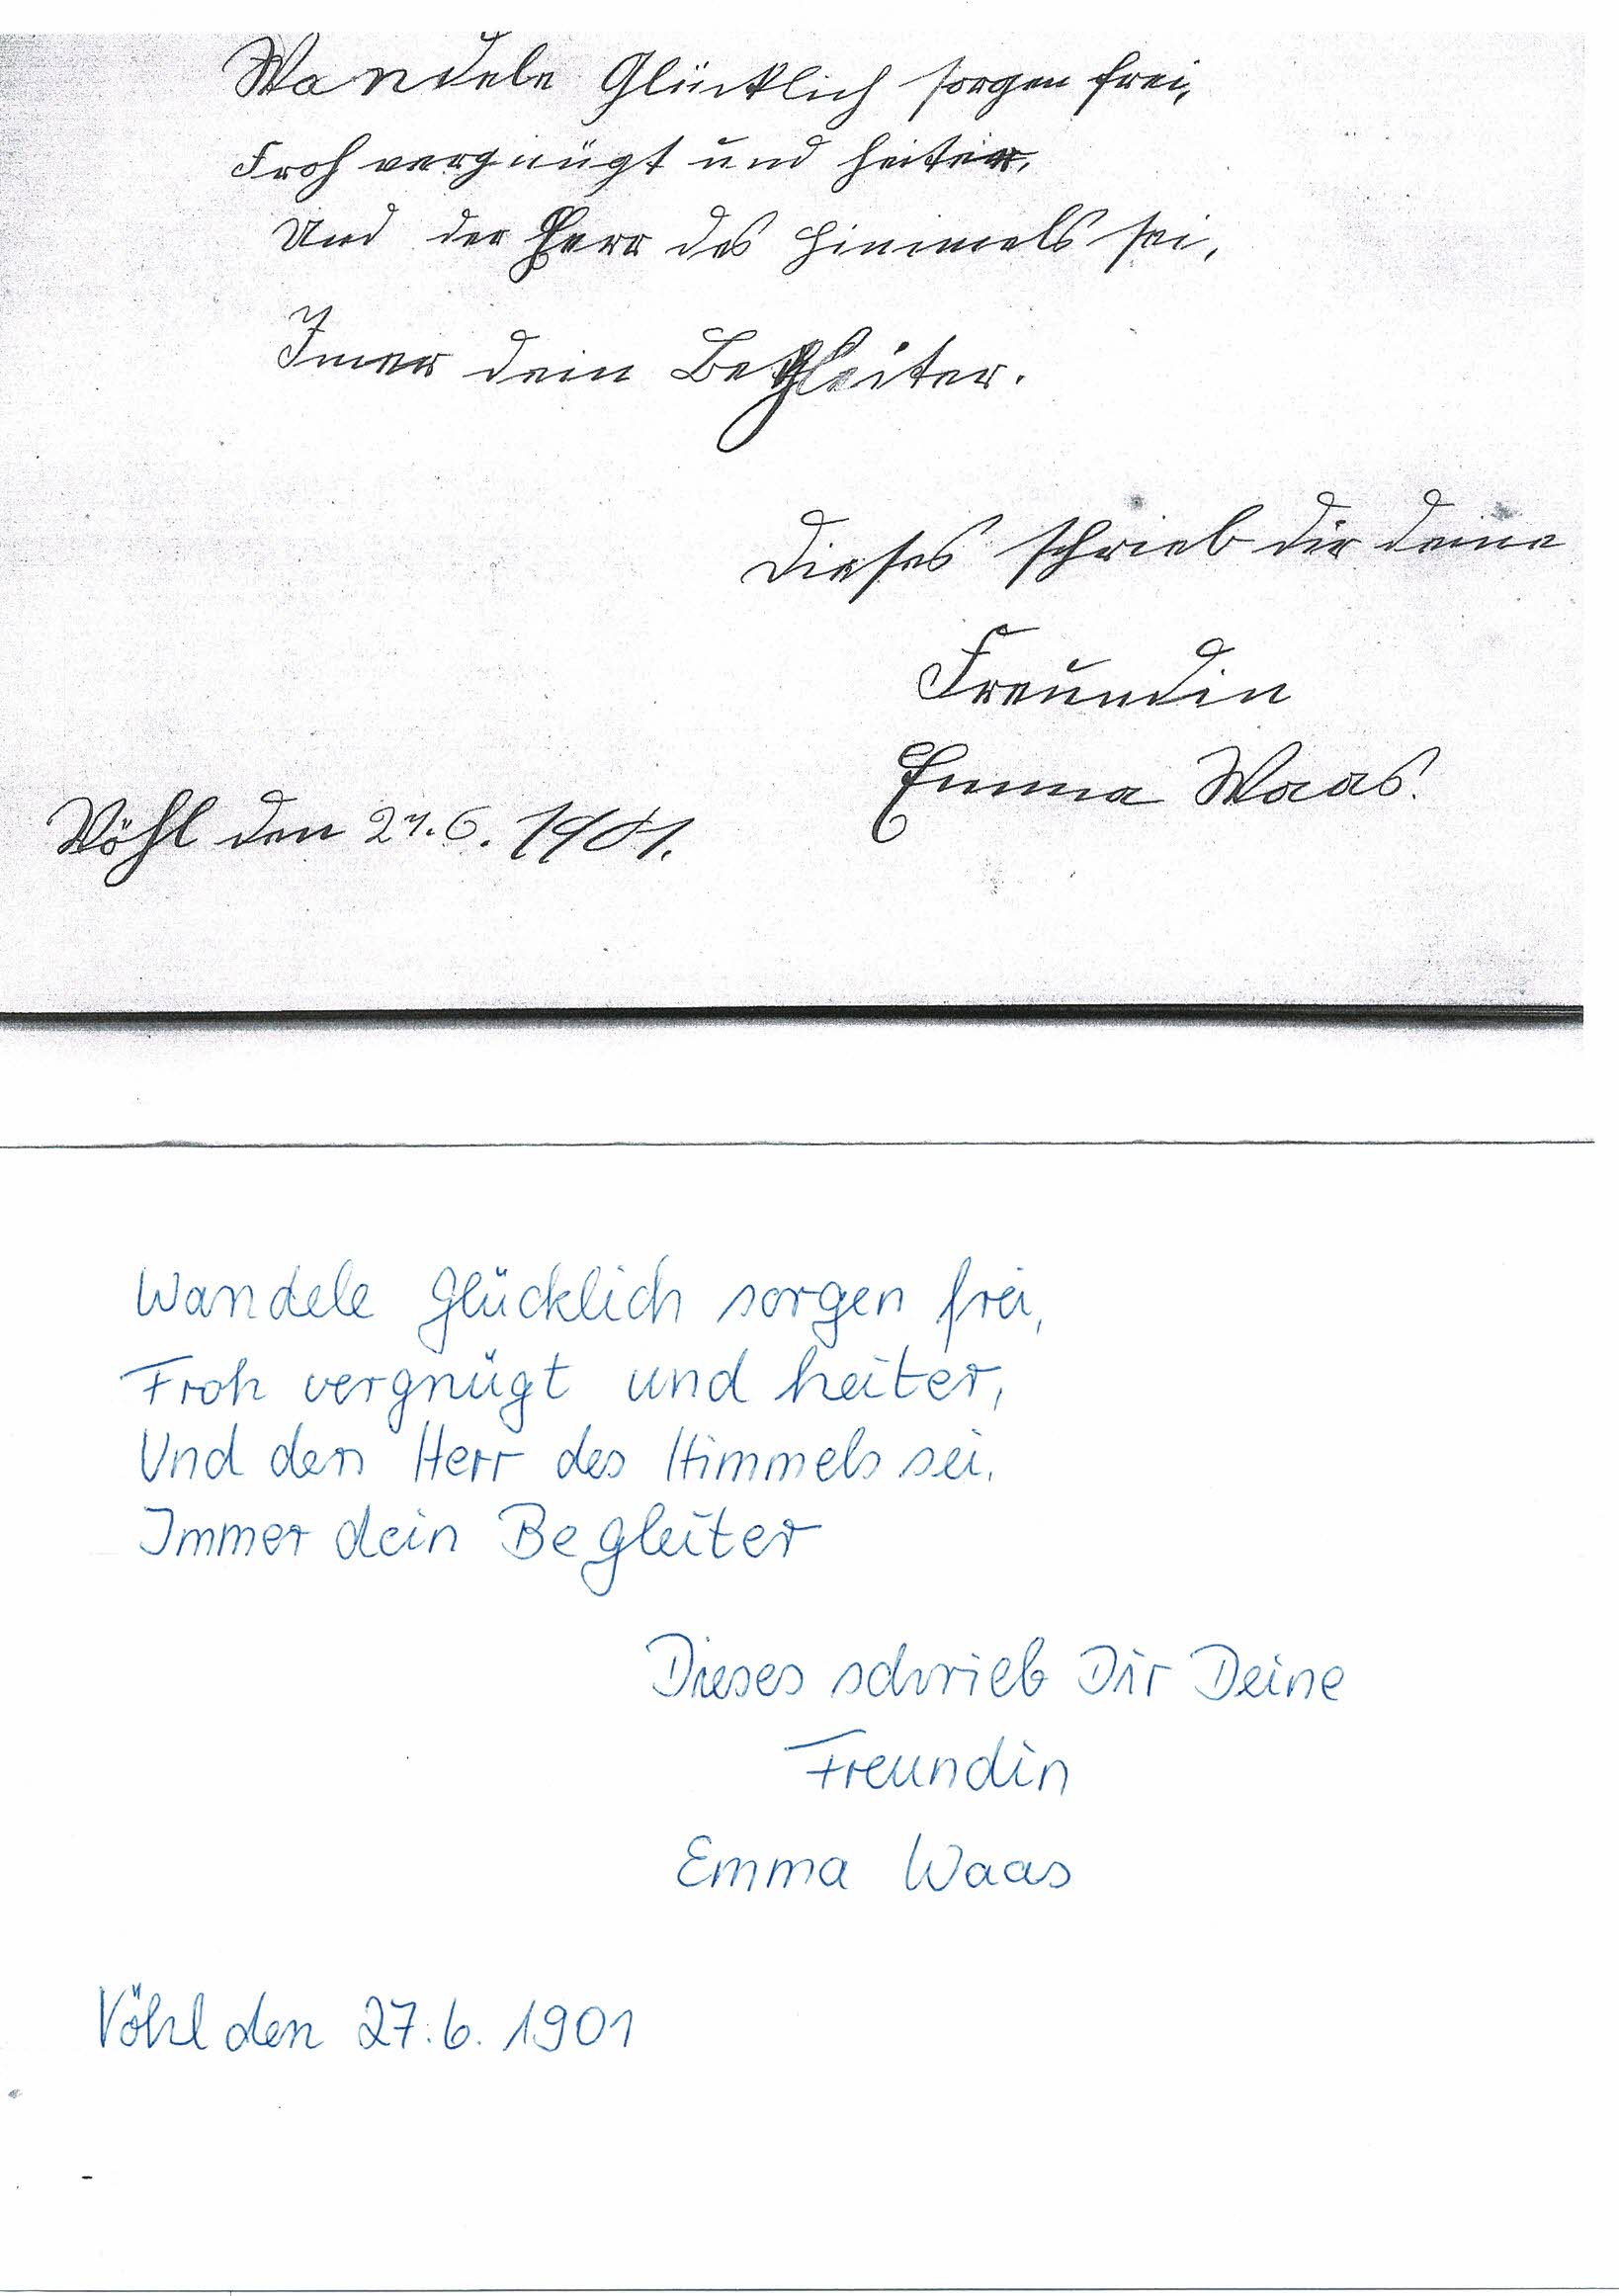 Wandele Glücklich sorgen frei,
Froh vergnügt und heiter,
Und der Herr des Himmels sei,
Imer dein Begleiter.
Dieses schrieb dir deine
Freundin
Emma Waas.
Vöhl den 27.6.1901.
Wandele Glücklich sorgen frei,
Froh vergnügt und heiter,
Und den Herr des Himmels sei.
Immer dein Begleiter
Dieses schrieb Dir Deine
Freundin
Emma Waas
Vöhl den 27.6.1901